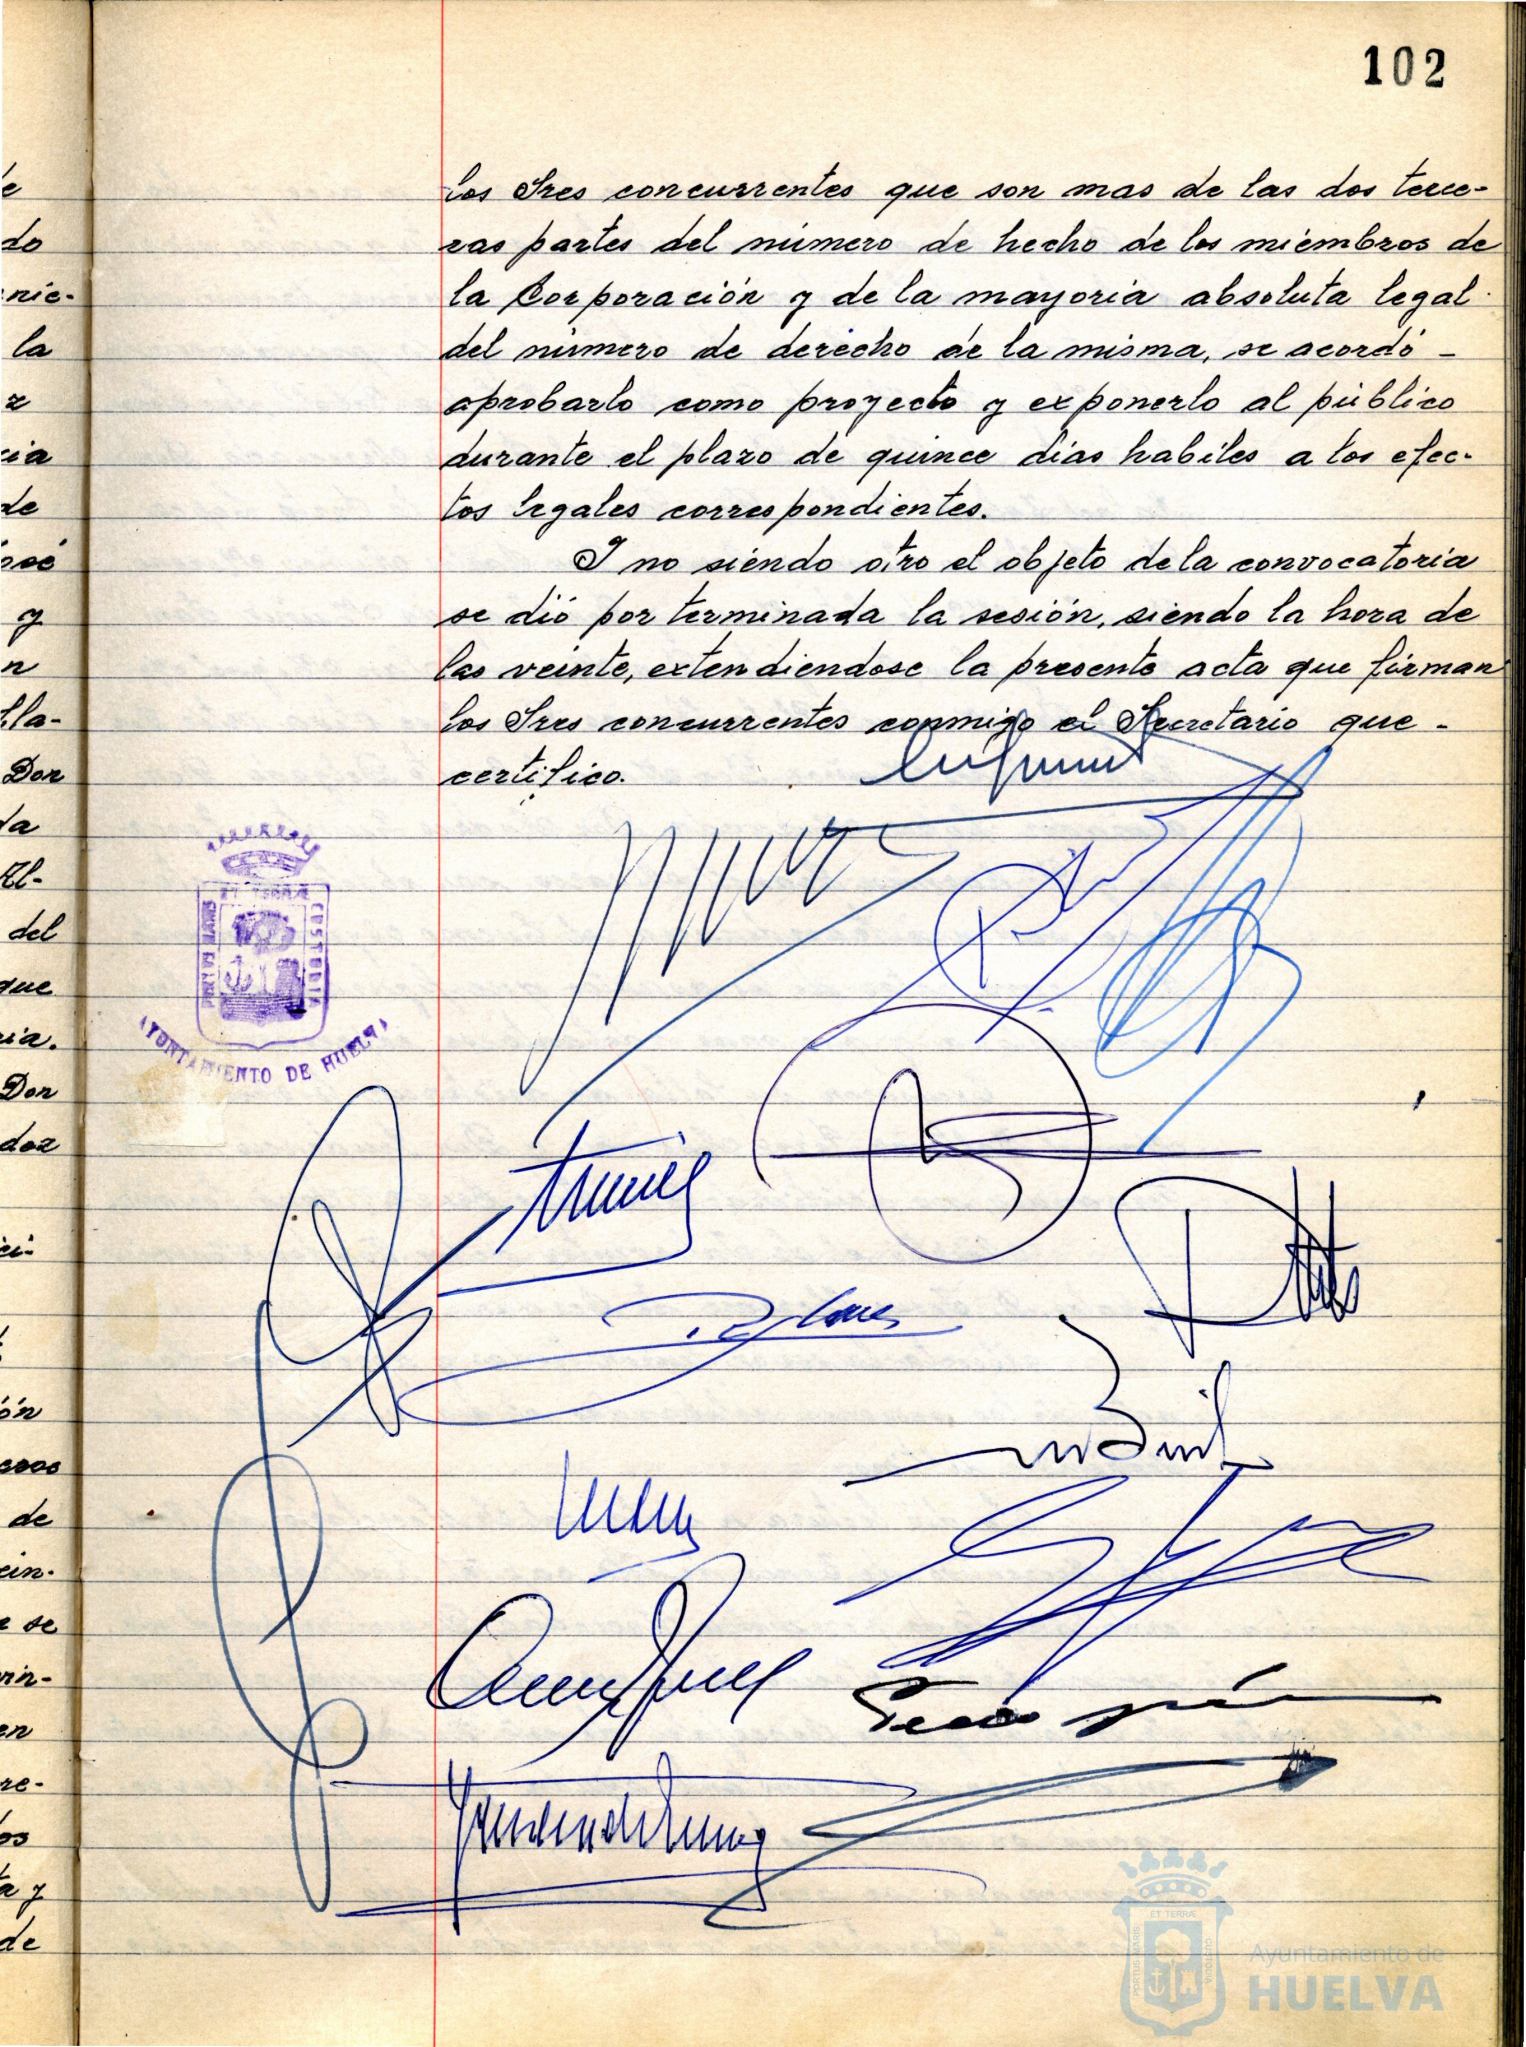 102
los Sres concurrentes que son mas de las dos terce-
ras partes del número de hecho de los miembros de
la Corporación y de la mayoria absoluta legal
del número de derecho de la misma, se acordó -
aprobarlo como proyecto y exponerlo al público
durante el plazo de quince dias habiles a los efec-
tos legales correspondientes.
Y no siendo otro el objeto de la convocatoria
se dió por terminada la sesión, siendo la hora de
las veinte, extendiendose la presente acta que firman
los Sres concurrentes conmigo el Secretario que -
certifico.
ET TERRÆ
AYUNTAMIENTO DE HUELVA
e
do
nie-
la
z
cia
de
José
y
n
lla-
Don
da
Al-
del
que
ria.
Don
doz
ci-
ón
de
cin-
e se
en
re-
os
ta y
de
PORTUS MARIS
ET TERRÆ
CUSTODIA
Ayuntamiento de
HUELVA